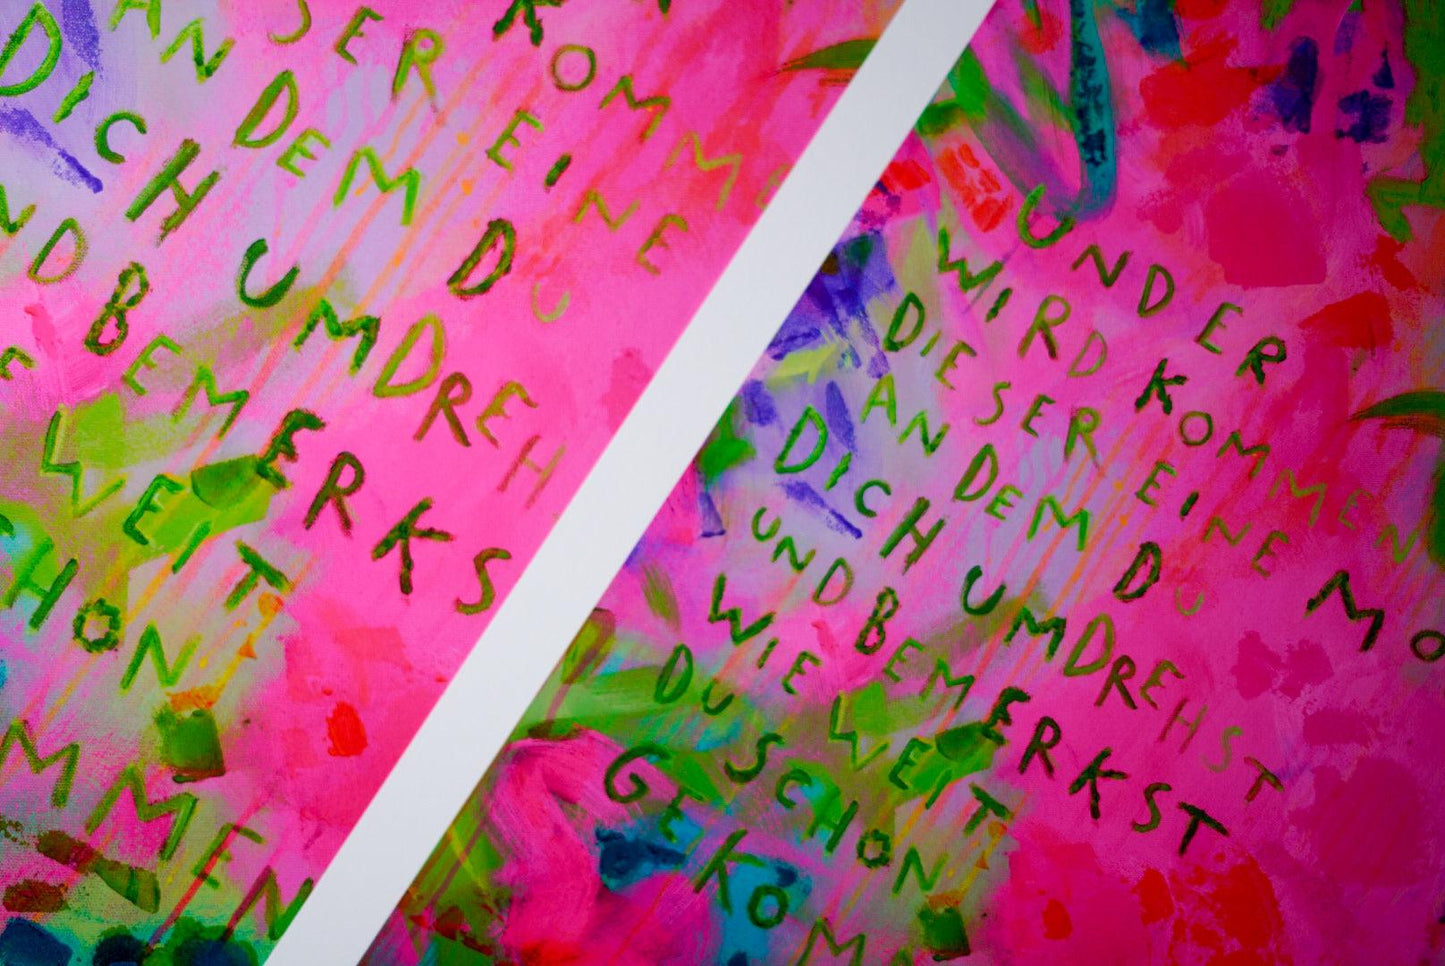 KOMME
SER EINE
AN DEM DU
DICH UMDREH
ND BEMERKS
E WEIT
CHON
MMEN
UND ER
WIRD KOMMEN
DIESER EINE MO
AN DEM DU
DICH UMDREHST
UND BEMERKST
WIE WEIT
DU SCHON
GEKOM